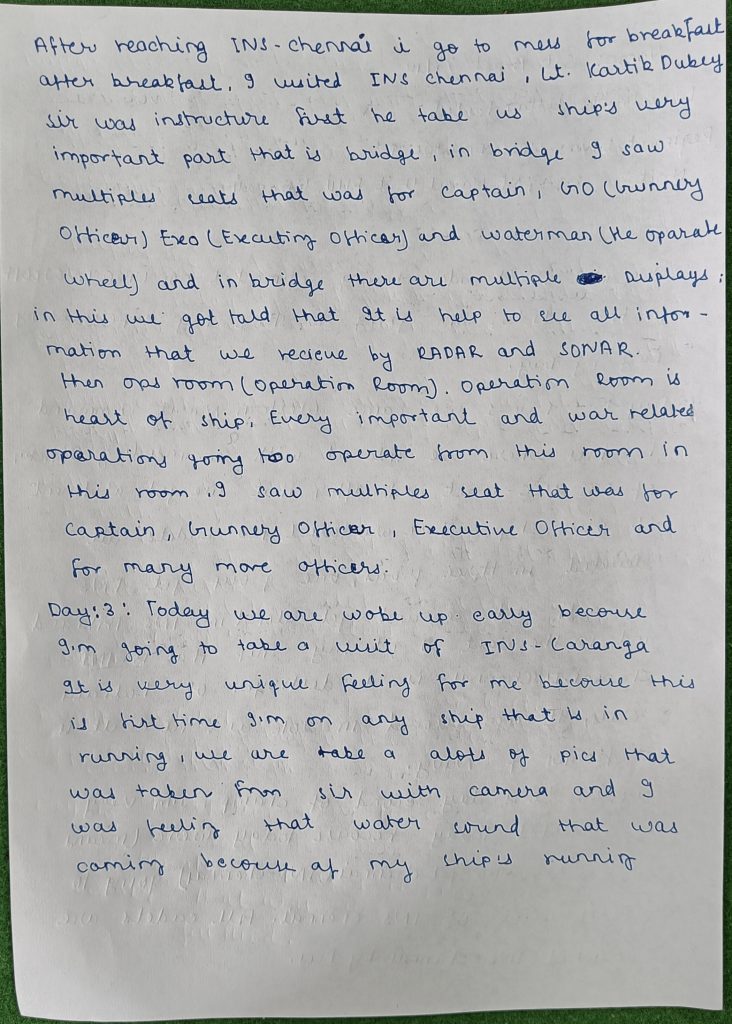 After reaching INS-chennai i go to mess for breakfast
after breakfast, I visited INS chennai, Lt. Kartik Dubey
sir was instructure first he take us ship's very
important part that is bridge, in bridge I saw
multiples seats that was for captain, GO (Gunnery
Officer) Exo (Executing Officer) and waterman (He oparate
wheel) and in bridge there are multiple Displays;
in this we got told that It is help to see all infor-
mation that we recieve by RADAR and SONAR.
then ops room (Operation Room). Operation Room is
heart of ship. Every important and war related
oparations going too operate from this room in
this room. I saw multiples seat that was for
Captain, Gunnery Officer, Executive Officer and
for many more officers.
Day:3: Today we are woke up early becouse
I'm going to take a visit of INS-Caranga
It is very unique feeling for me becouse this
is first time I'm on any ship that is in
running, we are take a alots of pics that
was taken from sir with camera and I
was feeling that water sound that was
coming becouse of my ship is running